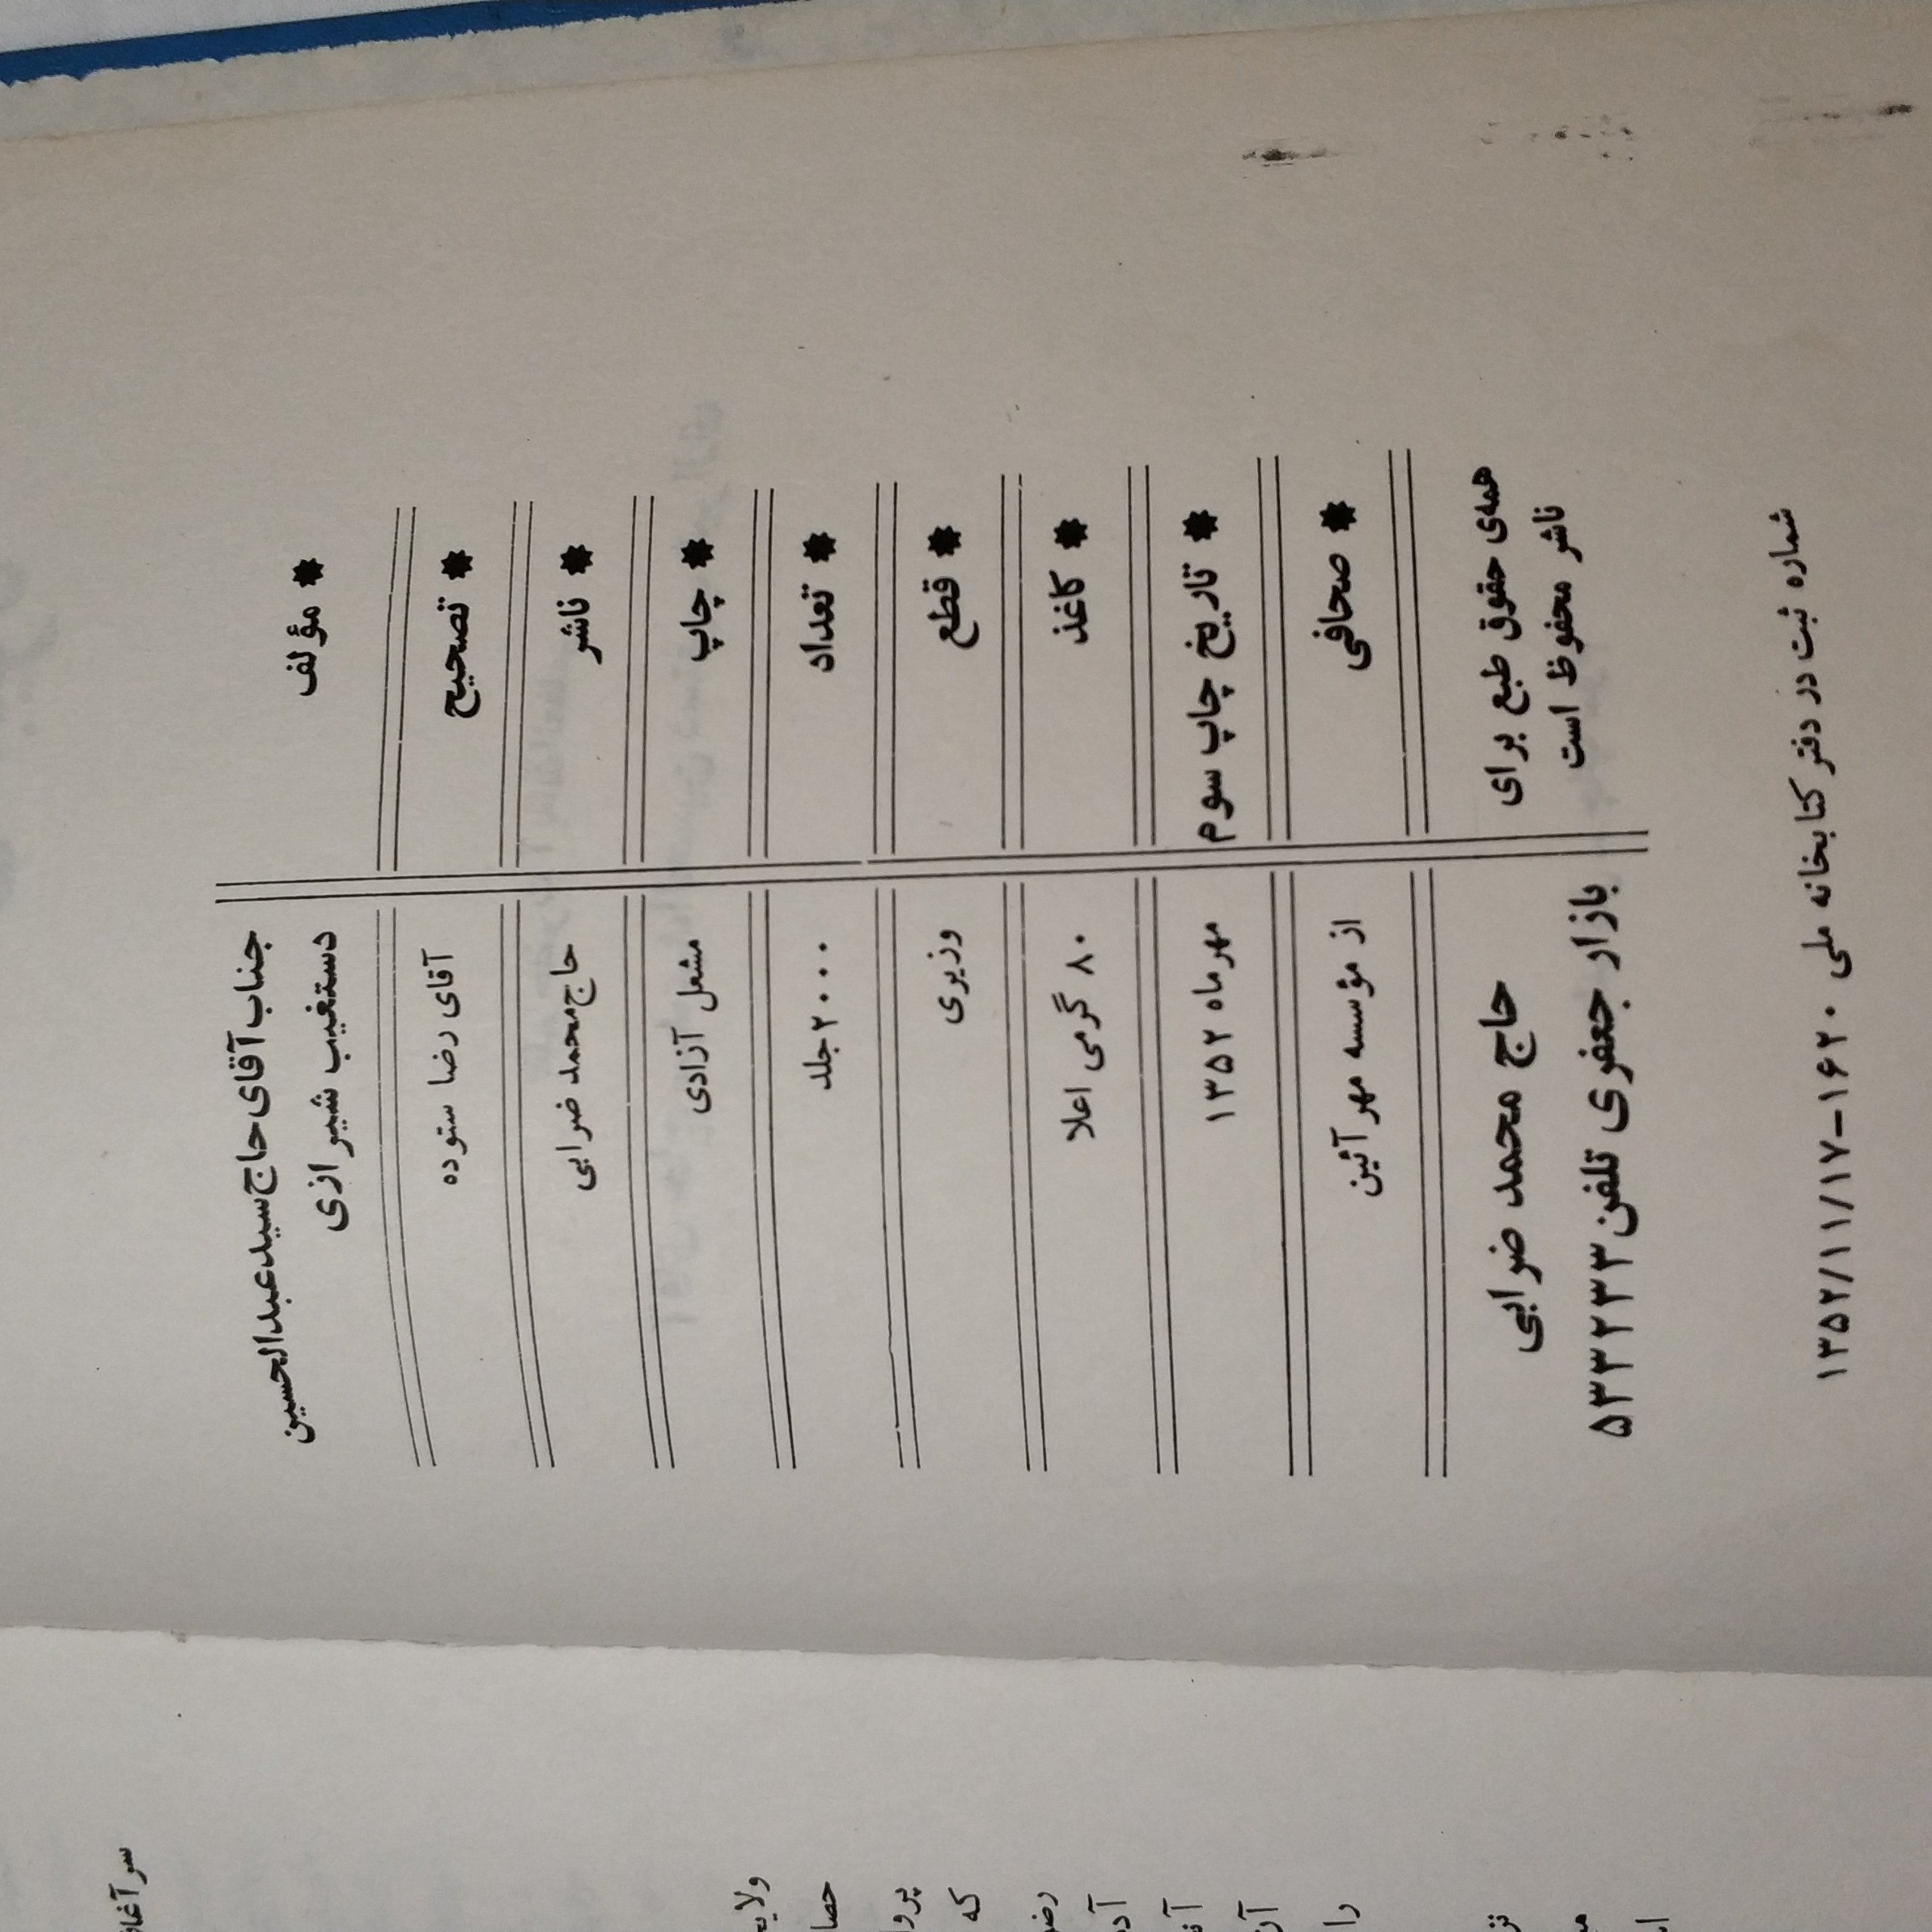 * مؤلف
جناب آقای حاج سید عبدالحسین
دستغیب شیرازی
* تصحیح
آقای رضا ستوده
* ناشر
حاج محمد ضرابی
* چاپ
مشعل آزادی
* تعداد
۲۰۰۰ جلد
* قطع
وزیری
* کاغذ
۸۰ گرمی اعلا
* تاریخ چاپ سوم
مهرماه ۱۳۵۲
* صحافی
از مؤسسه مهر آئین
همه‌ی حقوق طبع برای
ناشر محفوظ است
حاج محمد ضرابی
بازار جعفری تلفن ۵۳۳۲۳۳
شماره ثبت در دفتر کتابخانه ملی ۱۶۲۰-۱۳۵۲/۱۱/۱۷
که
را